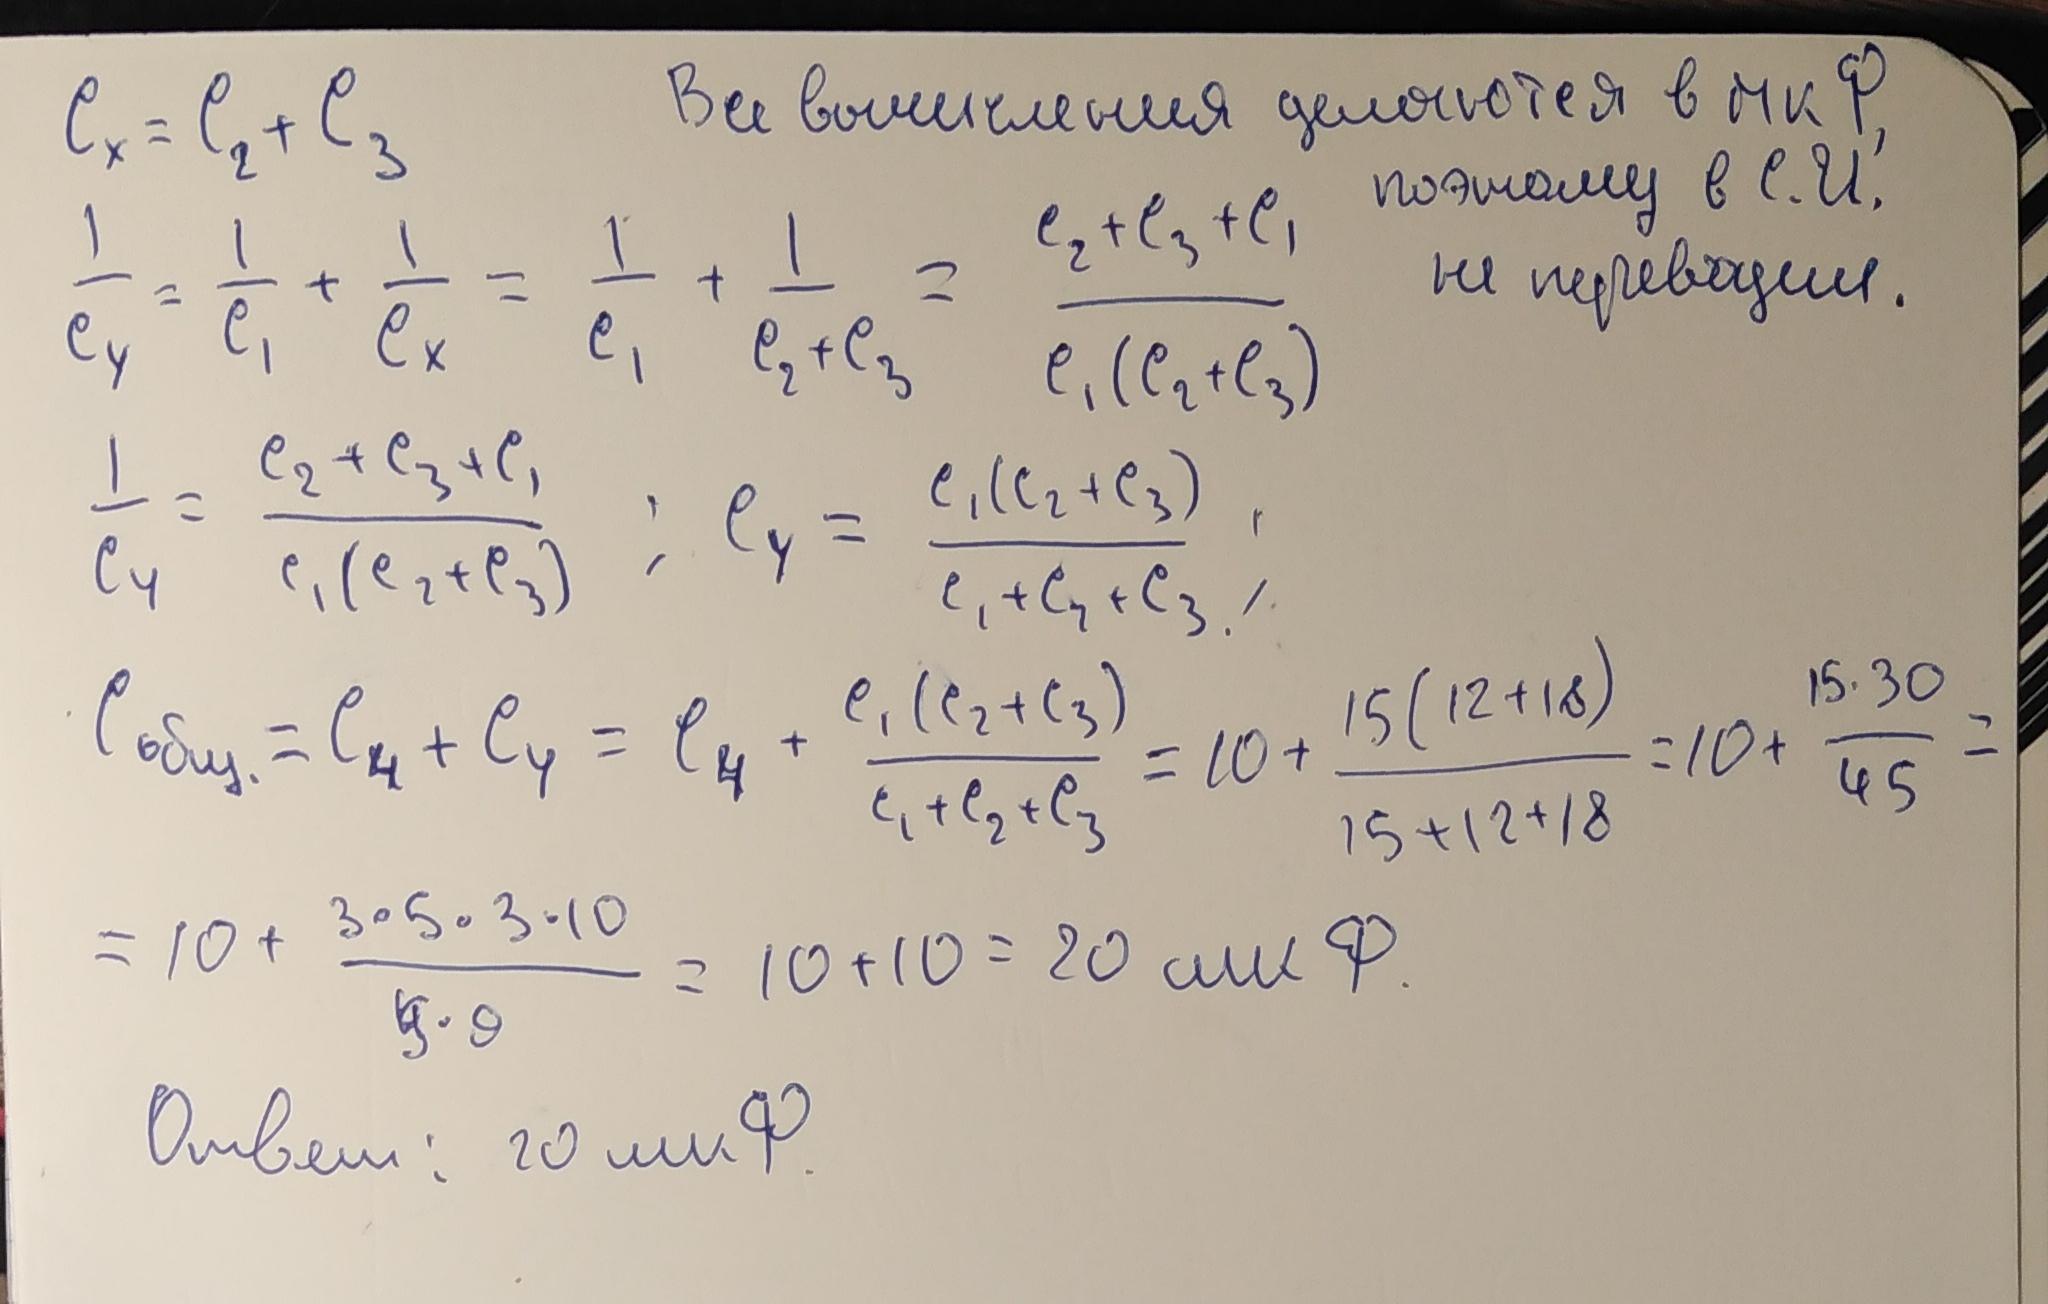 Cx = C2 + C3
Все вычисления делаются в мкФ,
поэтому в С.И.
не переводим.
1/Cy = 1/C1 + 1/Cx = 1/C1 + 1/(C2+C3) = (C2+C3+C1)/(C1(C2+C3))
1/Cy = (C2+C3+C1)/(C1(C2+C3)) ; Cy = C1(C2+C3)/(C1+C2+C3) ;
Cобщ. = C4 + Cy = C4 + C1(C2+C3)/(C1+C2+C3) = 10 + 15(12+18)/(15+12+18) = 10 + 15·30/45 =
= 10 + 3·5·3·10/(5·9) = 10 + 10 = 20 мкФ.
Ответ: 20 мкФ.